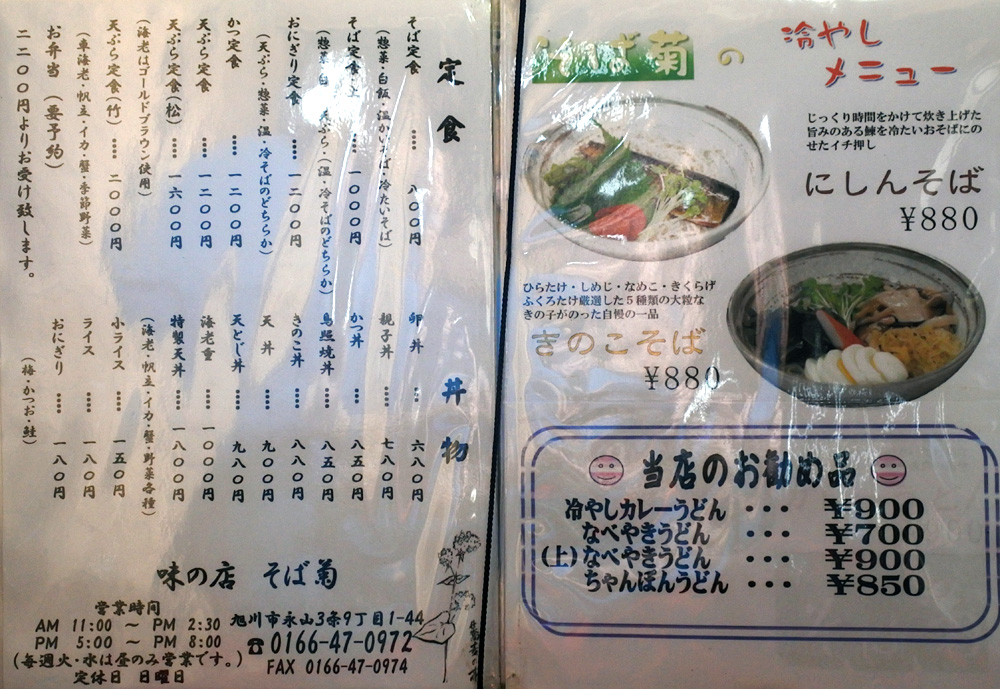 定食
そば定食 ・・・・ 八〇〇円
(惣菜・白飯・温かいそば・冷たいそば)
そば定食・上 ・・・・ 一〇〇〇円
(惣菜・白飯・天ぷら・(温・冷そばのどちらか)
おにぎり定食 ・・・・ 一二〇〇円
(天ぷら・惣菜・温・冷そばのどちらか)
かつ定食 ・・・・ 一二〇〇円
天ぷら定食 ・・・・ 一二〇〇円
天ぷら定食(松) ・・・・ 一六〇〇円
(海老はゴールドブラウン使用)
天ぷら定食(竹) ・・・・ 二〇〇〇円
(車海老・帆立・イカ・蟹・季節野菜)
お弁当 (要予約)
二二〇〇円よりお受け致します。
丼物
卵丼 ・・・・ 六八〇円
親子丼 ・・・・ 七八〇円
かつ丼 ・・・・ 八五〇円
鳥照焼丼 ・・・・ 八五〇円
きのこ丼 ・・・・ 八八〇円
天丼 ・・・・ 九〇〇円
天とじ丼 ・・・・ 九八〇円
海老重 ・・・・ 一〇〇〇円
特製天丼 ・・・・ 一八〇〇円
(海老・帆立・イカ・蟹・野菜各種)
小ライス ・・・・ 一五〇円
ライス ・・・・ 一八〇円
おにぎり ・・・・ 一八〇円
(梅・かつお・鮭)
味の店 そば菊
営業時間
AM 11:00 ~ PM 2:30
PM 5:00 ~ PM 8:00
(毎週火・水は昼のみ営業です。)
定休日 日曜日
旭川市永山3条9丁目1-44
☎0166-47-0972
FAX 0166-47-0974
そば菊の
冷やし
メニュー
じっくり時間をかけて炊き上げた
旨みのある鰊を冷たいおそばにの
せたイチ押し
にしんそば
¥880
ひらたけ・しめじ・なめこ・きくらげ
ふくろたけ厳選した5種類の大粒な
きの子がのった自慢の一品
きのこそば
¥880
当店のお勧め品
冷やしカレーうどん ・・・ ¥900
なべやきうどん ・・・ ¥700
(上)なべやきうどん ・・・ ¥900
ちゃんぽんうどん ・・・ ¥850